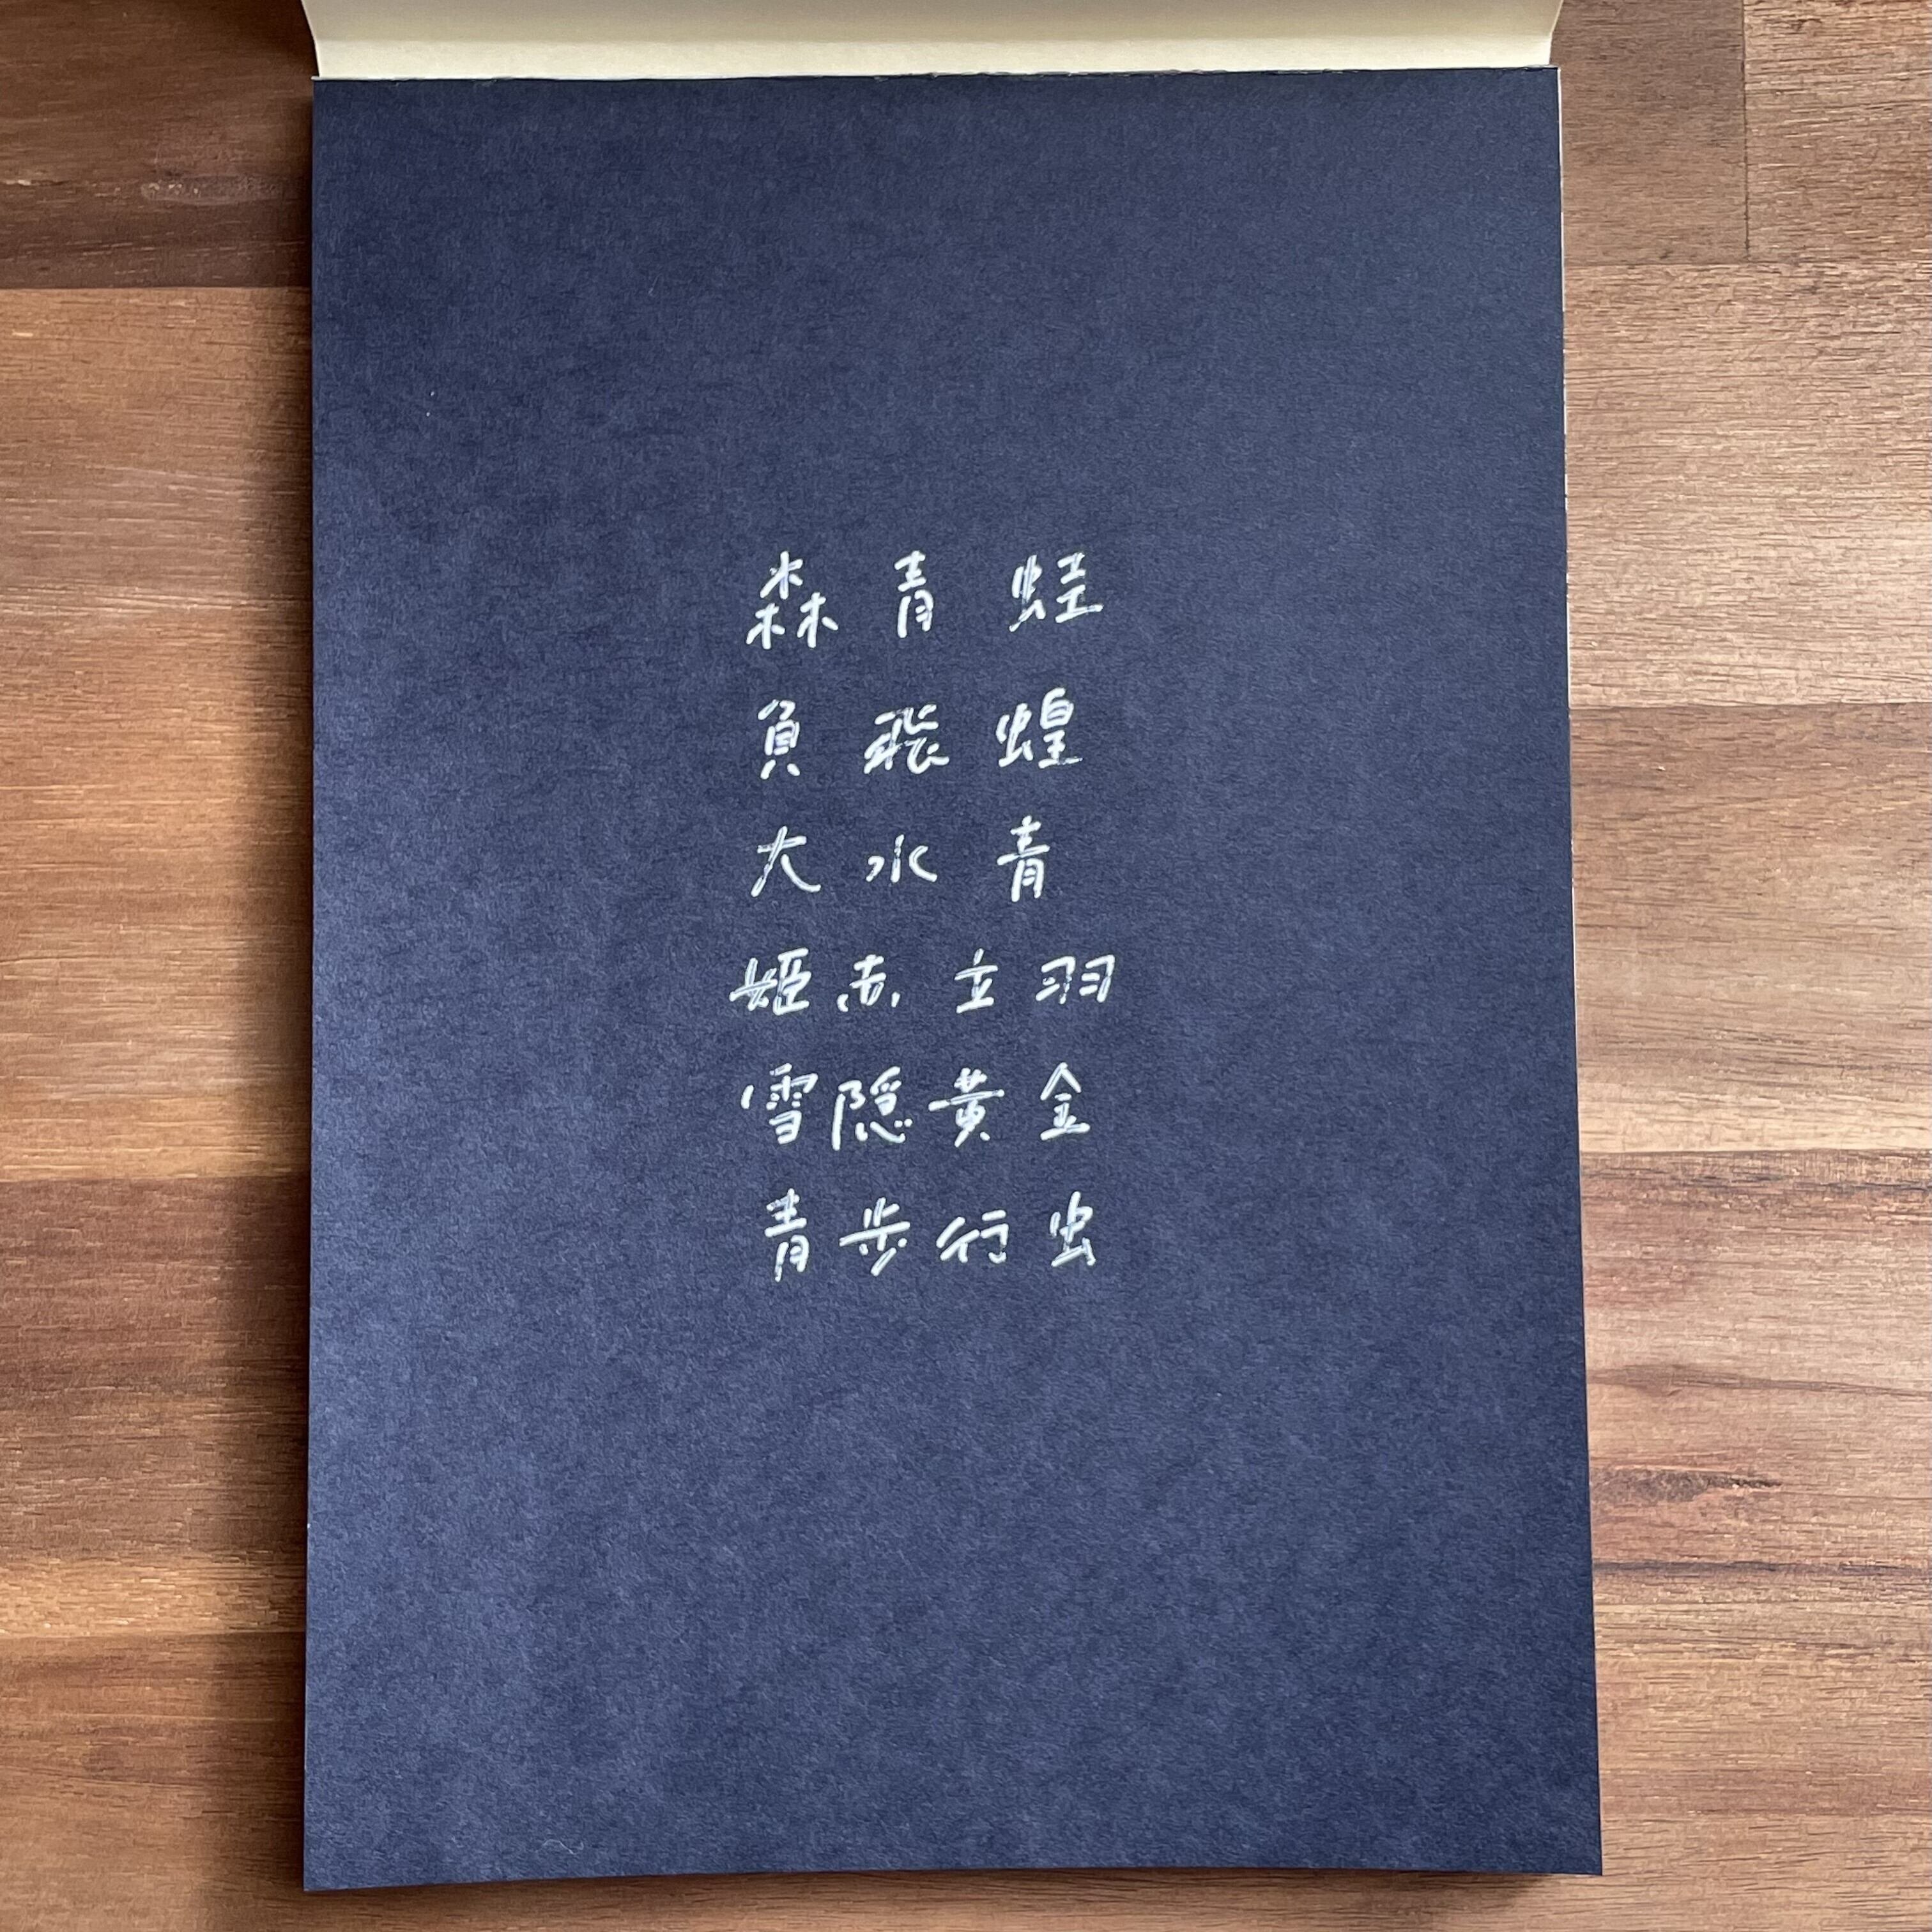 森青蛙
負飛蝗
大水青
姫赤立羽
雪隠黄金
青歩行虫